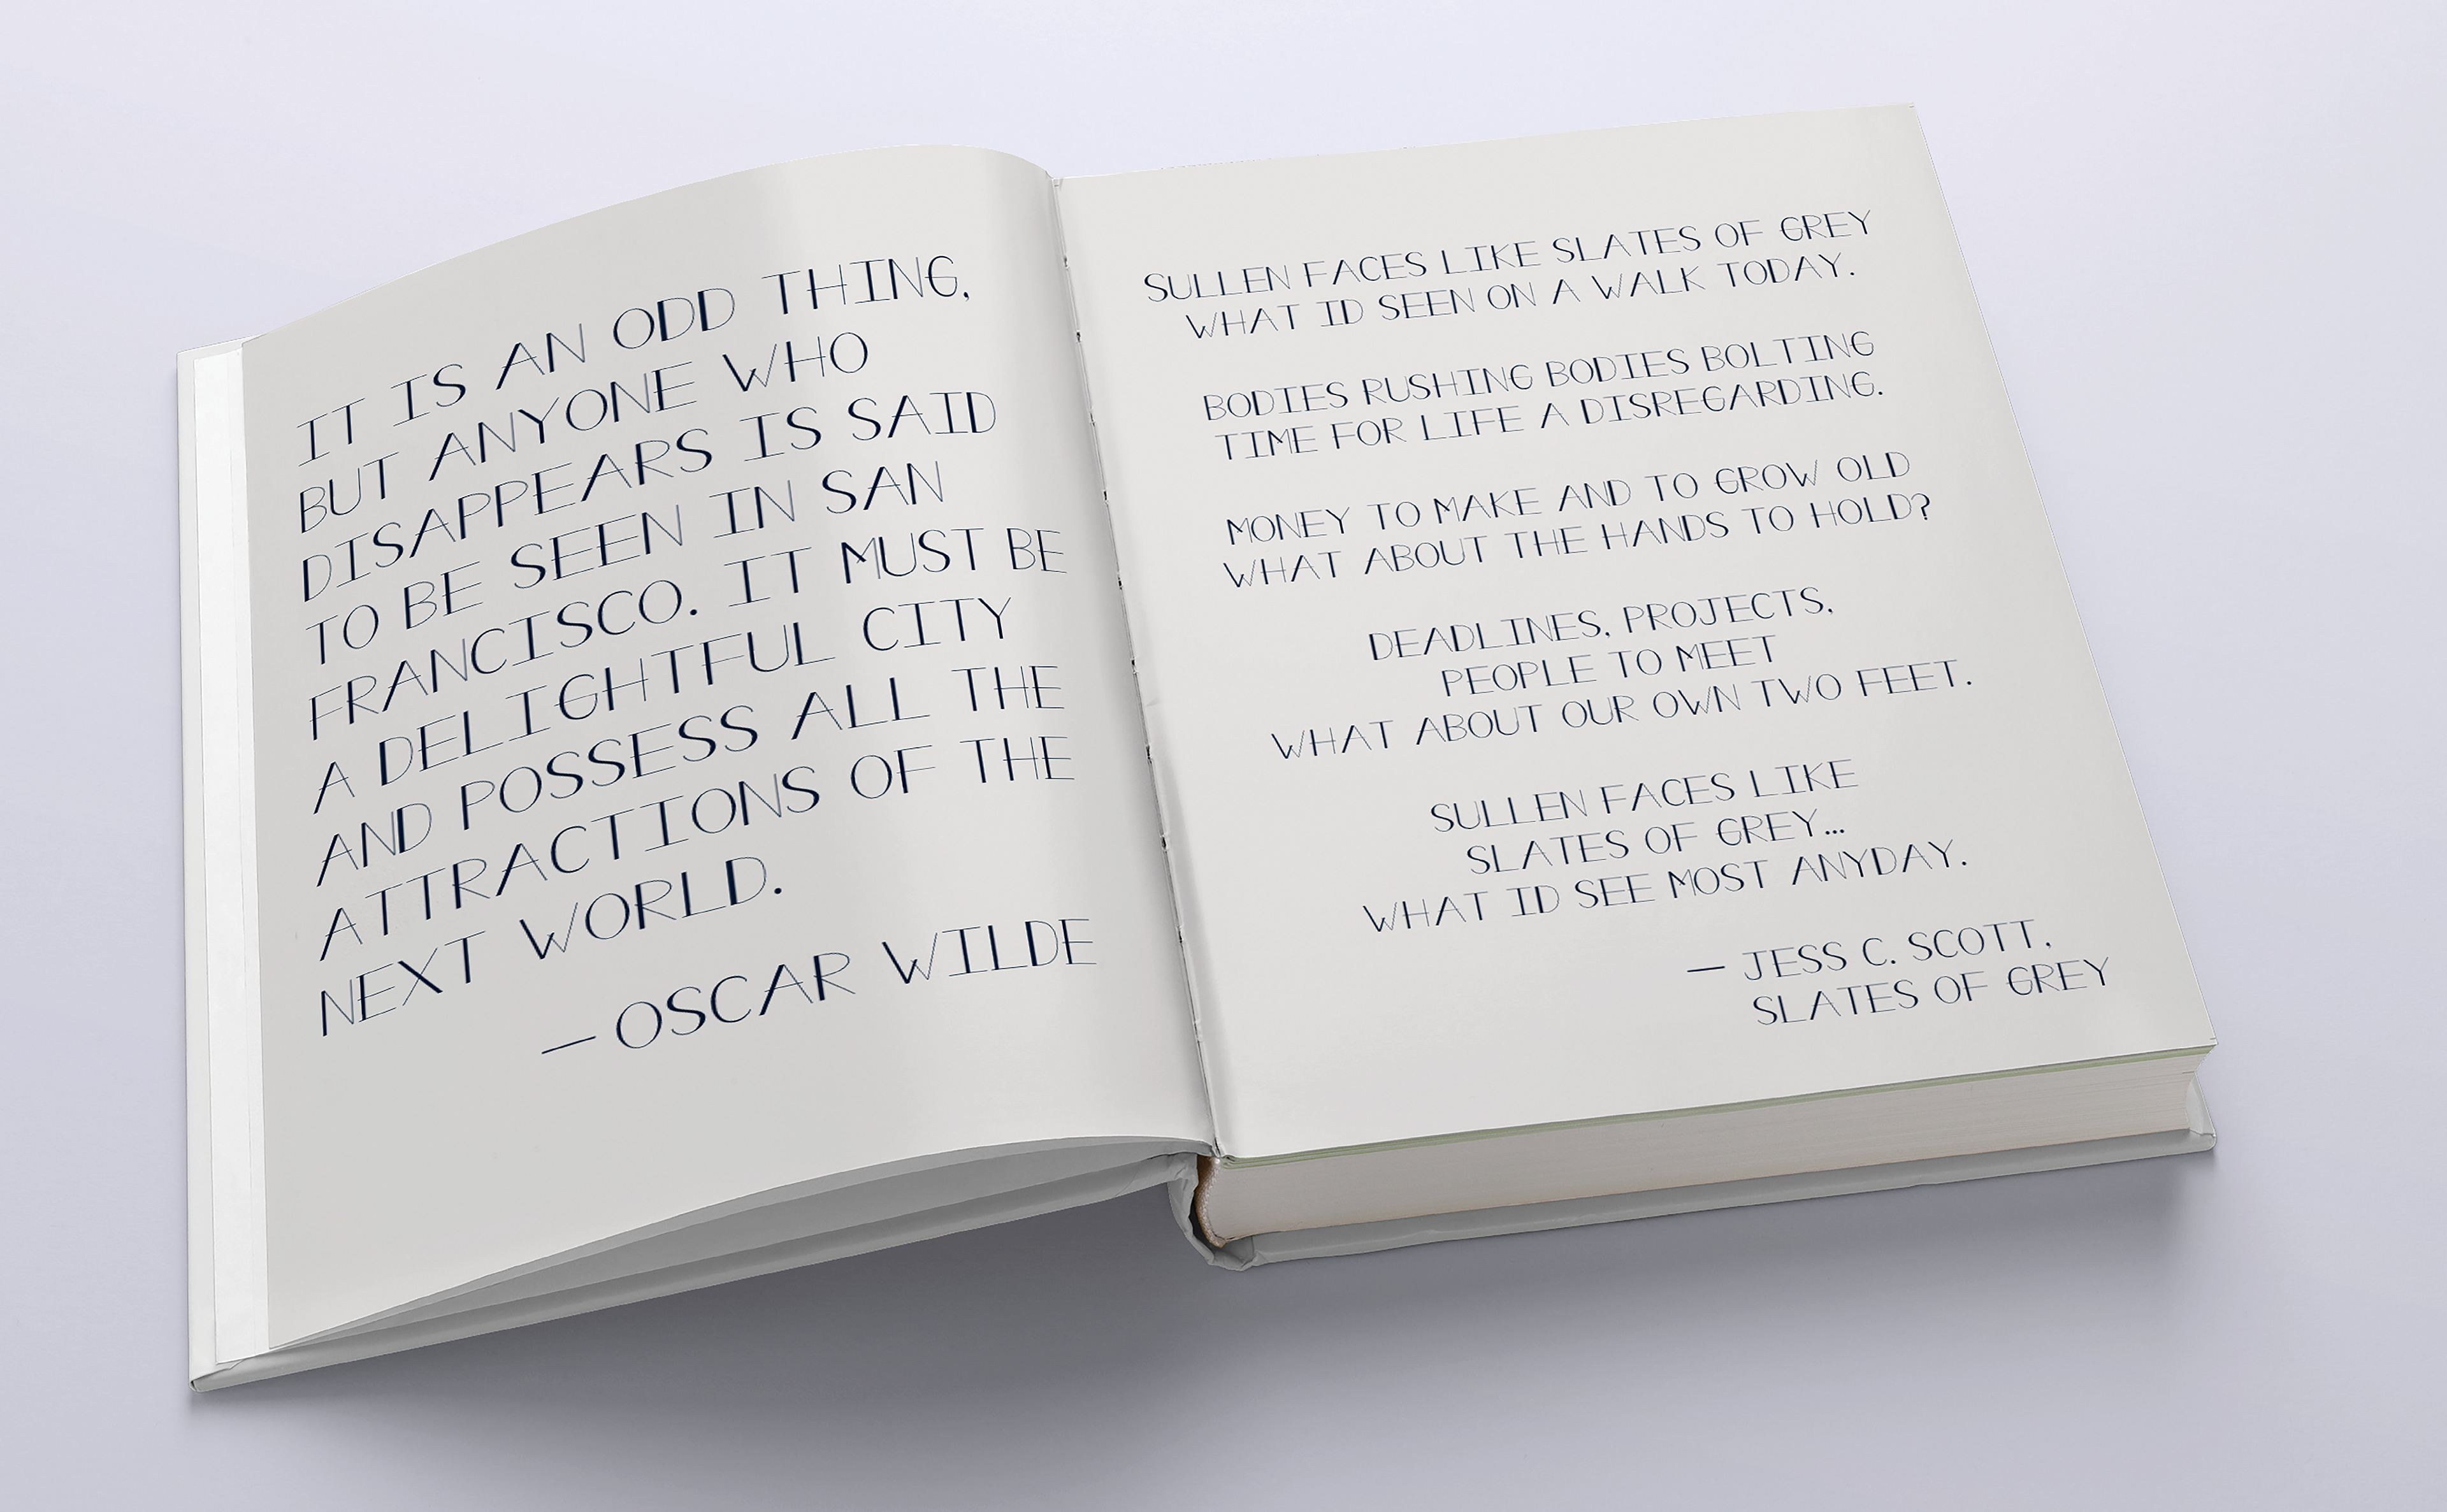 IT IS AN ODD THING,
BUT ANYONE WHO
DISAPPEARS IS SAID
TO BE SEEN IN SAN
FRANCISCO. IT MUST BE
A DELIGHTFUL CITY
AND POSSESS ALL THE
ATTRACTIONS OF THE
NEXT WORLD.
— OSCAR WILDE
SULLEN FACES LIKE SLATES OF GREY
WHAT ID SEEN ON A WALK TODAY.
BODIES RUSHING BODIES BOLTING
TIME FOR LIFE A DISREGARDING.
MONEY TO MAKE AND TO GROW OLD
WHAT ABOUT THE HANDS TO HOLD?
DEADLINES, PROJECTS,
PEOPLE TO MEET
WHAT ABOUT OUR OWN TWO FEET.
SULLEN FACES LIKE
SLATES OF GREY...
WHAT ID SEE MOST ANYDAY.
— JESS C. SCOTT,
SLATES OF GREY